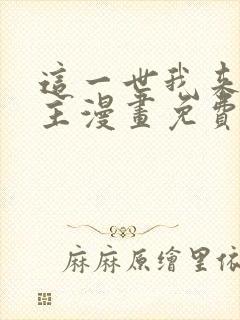 這一世我来
主漫畫免費
麻麻原繪里依